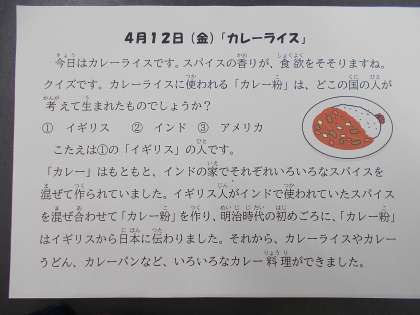 4月12日（金）「カレーライス」
今日はカレーライスです。スパイスの香りが、食欲をそそりますね。
クイズです。カレーライスに使われる「カレー粉」は、どこの国の人が
考えて生まれたものでしょうか？
① イギリス ② インド ③ アメリカ
こたえは①の「イギリス」の人です。
「カレー」はもともと、インドの家でそれぞれいろいろなスパイスを
混ぜて作られていました。イギリス人がインドで使われていたスパイス
を混ぜ合わせて「カレー粉」を作り、明治時代の初めごろに、「カレー粉」
はイギリスから日本に伝わりました。それから、カレーライスやカレー
うどん、カレーパンなど、いろいろなカレー料理ができました。